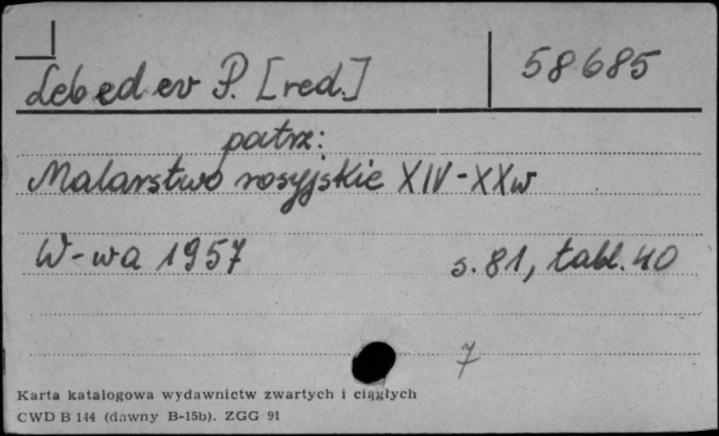 Lebedev P. [red.] 58685
patrz:
Malarstwo rosyjskie XIV-XXw
W-wa 1957 s. 81, tabl. 40
7
Karta katalogowa wydawnictw zwartych i ciągłych
CWD B 144 (dawny B-15b). ZGG 91